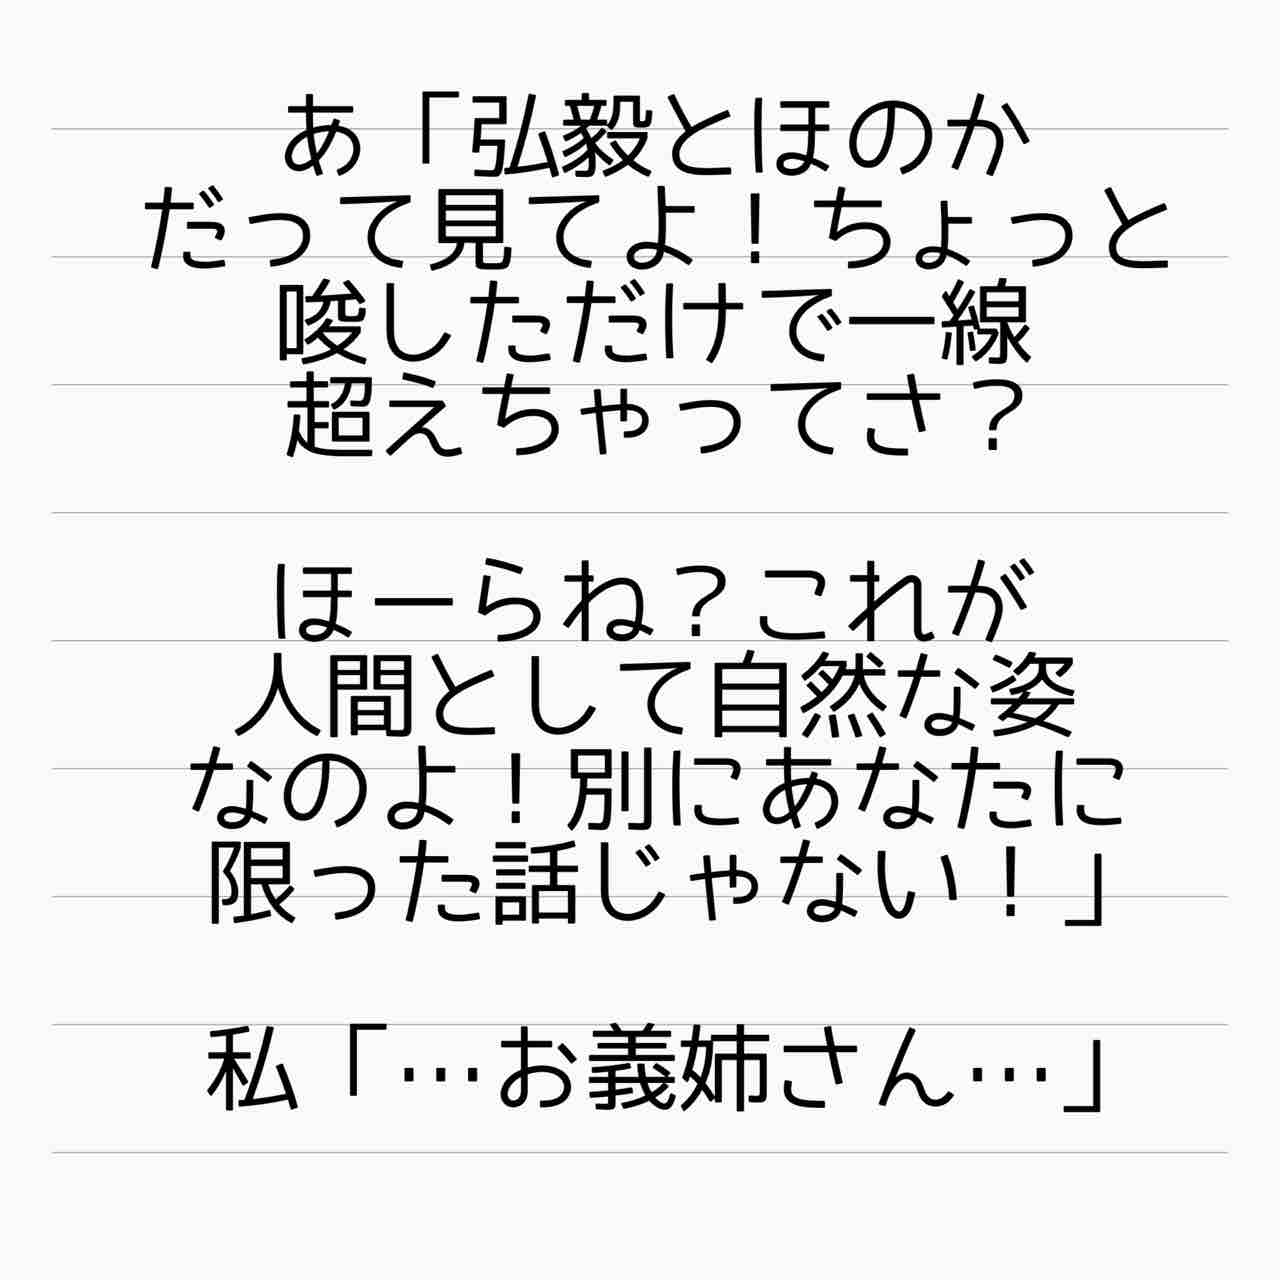 あ「弘毅とほのか
だって見てよ！ちょっと
唆しただけで一線
超えちゃってさ？
ほーらね？これが
人間として自然な姿
なのよ！別にあなたに
限った話じゃない！」
私「…お義姉さん…」